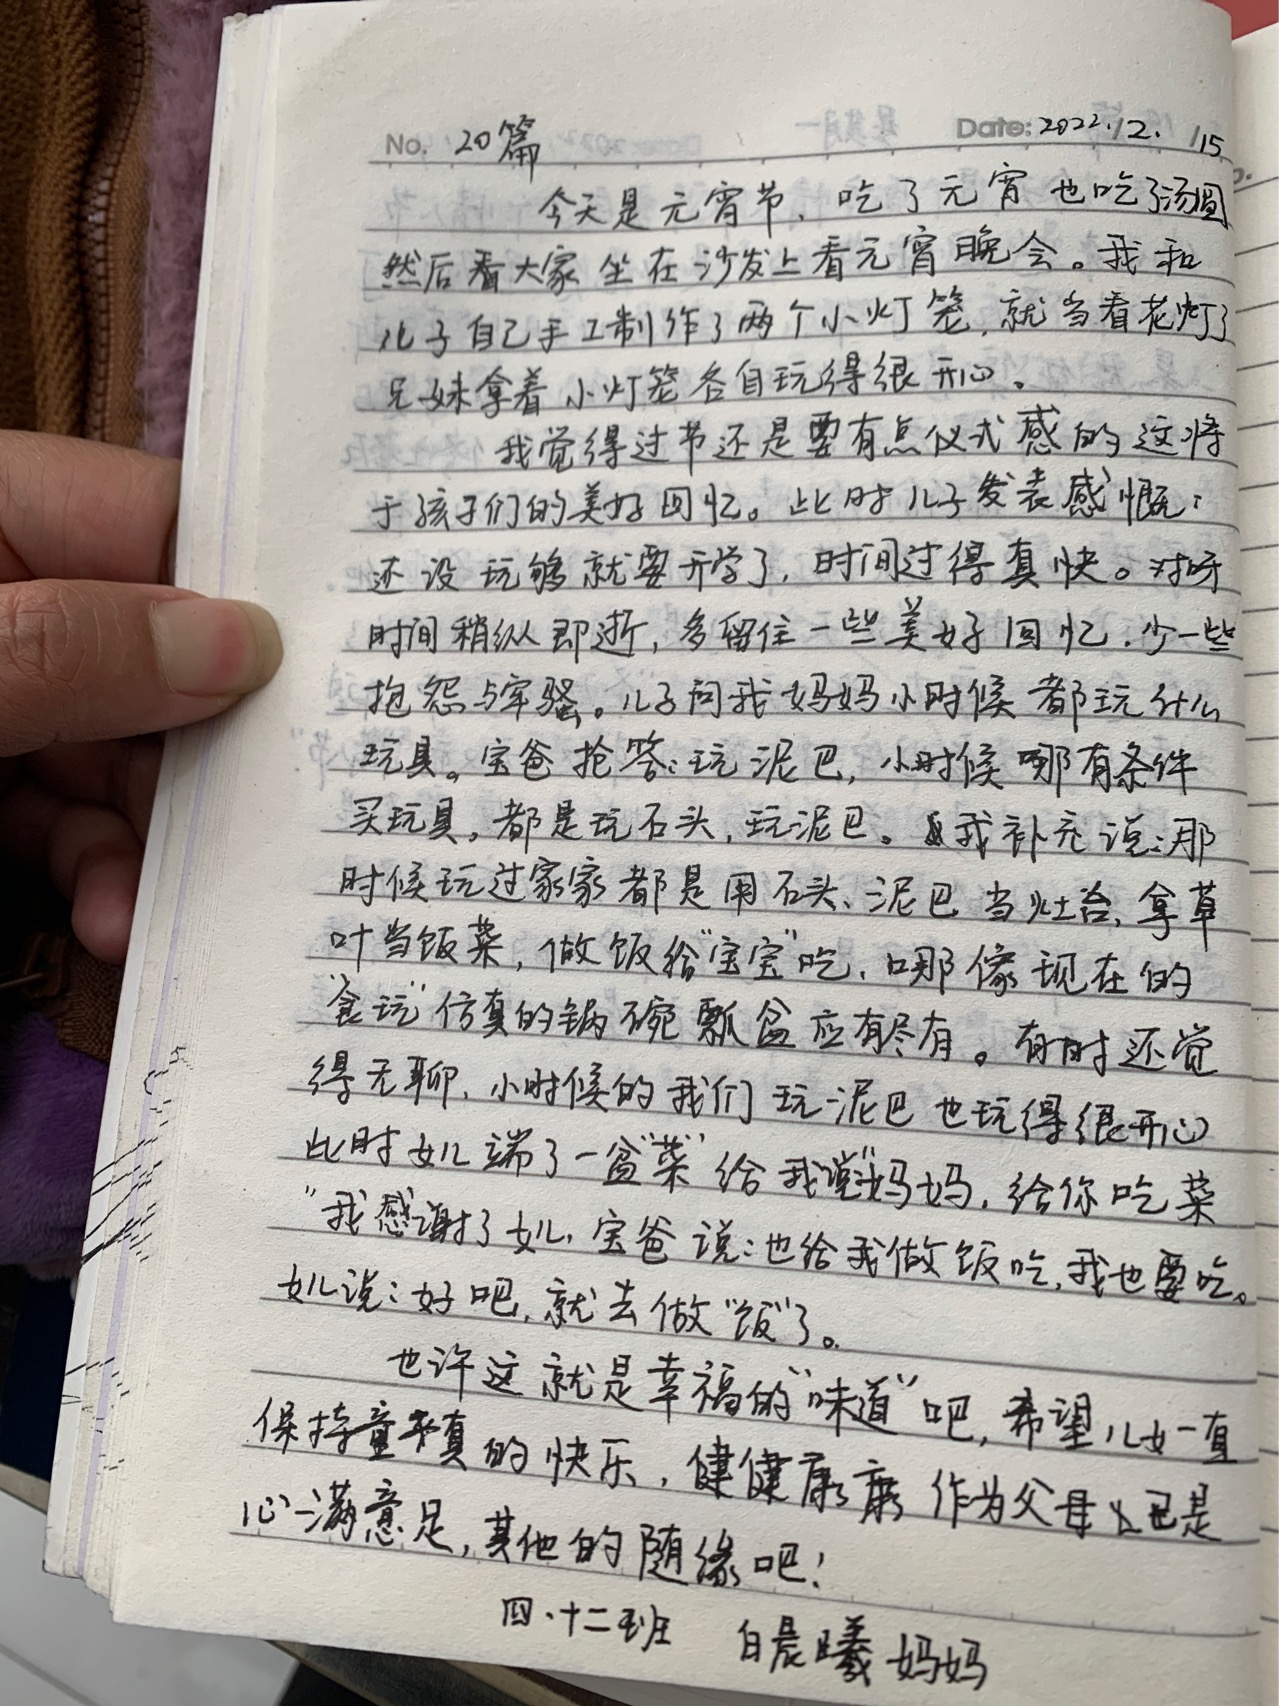 No. 20篇 Date: 2022.12.15
今天是元宵节，吃了元宵也吃了汤圆
然后看大家坐在沙发上看元宵晚会。我和
儿子自己手工制作了两个小灯笼，就当看花灯了
兄妹拿着小灯笼各自玩得很开心。
我觉得过节还是要有点仪式感的这将
于孩子们的美好回忆。此时儿子发表感慨：
还没玩够就要开学了，时间过得真快。对呀
时间稍纵即逝，多留住一些美好回忆，少一些
抱怨与牢骚。儿子问我妈妈小时候都玩什么
玩具。宝爸抢答：玩泥巴，小时候哪有条件
买玩具，都是玩石头，玩泥巴。我补充说：那
时候玩过家家都是用石头、泥巴当灶台，拿草
叶当饭菜，做饭给“宝宝”吃，哪像现在的
“食玩”仿真的锅碗瓢盆应有尽有。有时还觉
得无聊，小时候的我们玩泥巴也玩得很开心
此时女儿端了一盆“菜”给我说“妈妈，给你吃菜
”我感谢了女儿，宝爸说：也给我做饭吃，我也要吃。
女儿说：好吧，就去做“饭”了。
也许这就是幸福的“味道”吧，希望儿女一直
保持童真的快乐，健健康康作为父母也已是
心满意足，其他的随缘吧！
四·十二班 白晨曦妈妈